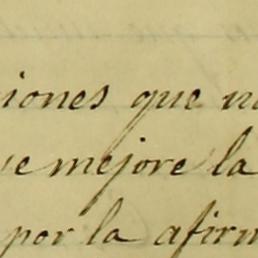 iones que n
ue mejore la
por la afirm